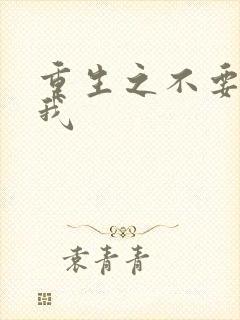 重生之不要
我
袁青青